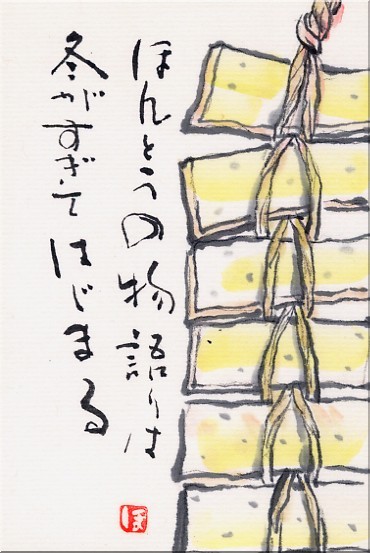 ほんとうの物語りは
冬がすぎてはじまる
ぼ